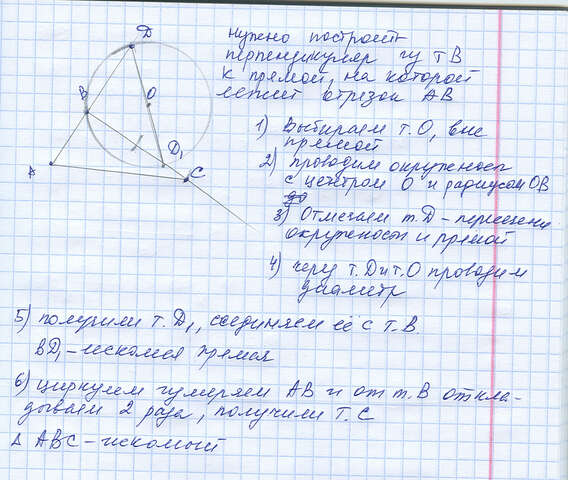 Нужно построить
перпендикуляр из т В
к прямой, на которой
лежит отрезок АВ
1) Выбираем т. О, вне
прямой
2) проводим окружность
с центром О и радиусом ОВ
3) Отмечаем т. Д - пересечен
окружности и прямой
4) через т. Д и т. О проводим
диаметр
5) получили т. Д₁, соединяем её с т. В.
ВД₁ - искомая прямая
6) циркулем измеряем АВ и от т. В откла-
дываем 2 раза, получили т. С
Δ АВС - искомый
Д
В
О
Д₁
С
А